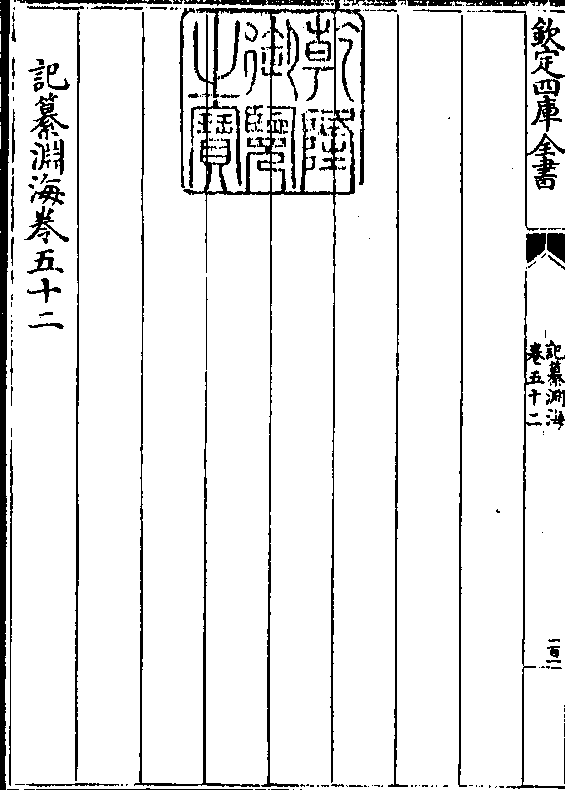 欽定四庫全書
記纂淵海
卷五十二
一百一
乾隆
御覽
之寶
記纂淵海卷五十二